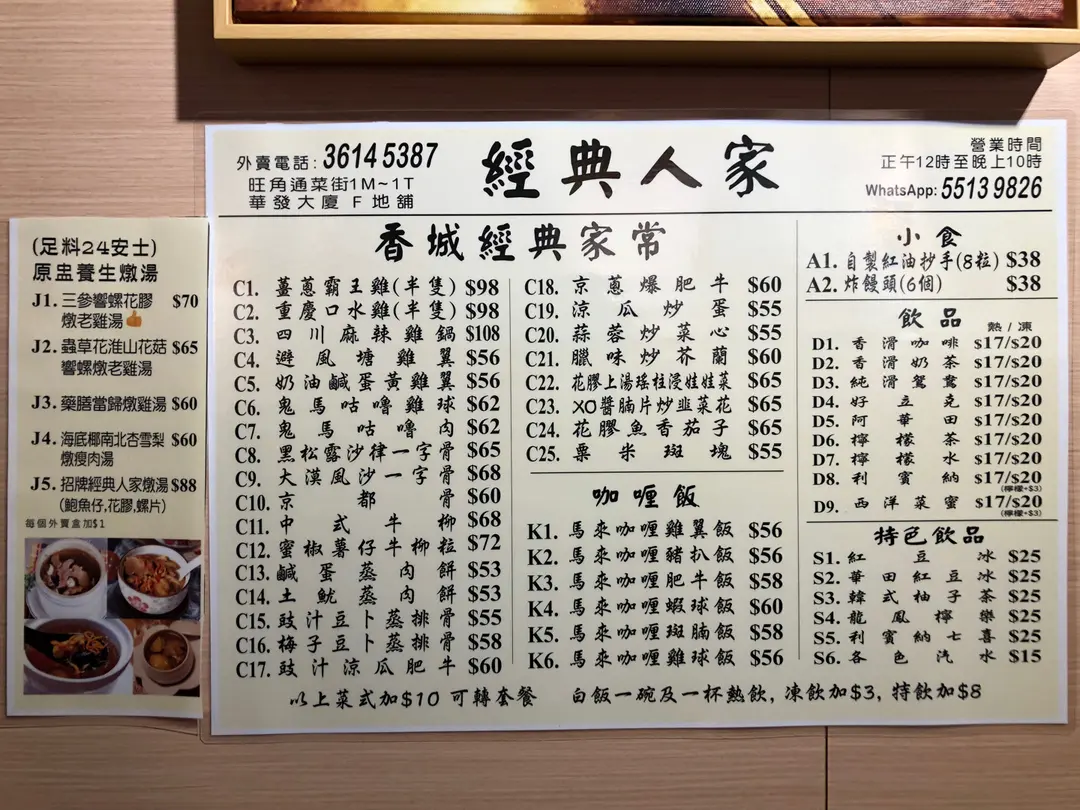 外賣電話: 3614 5387
旺角通菜街1M~1T
華發大廈 F 地舖
經典人家
營業時間
正午12時至晚上10時
WhatsApp: 5513 9826
(足料24安士)
原盅養生燉湯
J1. 三參響螺花膠 $70
燉老雞湯👍
J2. 蟲草花淮山花菇 $65
響螺燉老雞湯
J3. 藥膳當歸燉雞湯 $60
J4. 海底椰南北杏雪梨 $60
燉瘦肉湯
J5. 招牌經典人家燉湯 $88
(鮑魚仔,花膠,螺片)
每個外賣盒加$1
香城經典家常
C1. 薑蔥霸王雞(半隻) $98
C2. 重慶口水雞(半隻) $98
C3. 四川麻辣雞鍋 $108
C4. 避風塘雞翼 $56
C5. 奶油鹹蛋黃雞翼 $56
C6. 鬼馬咕嚕雞球 $62
C7. 鬼馬咕嚕肉 $62
C8. 黑松露沙律一字骨 $65
C9. 大漠風沙一字骨 $68
C10. 京都骨 $60
C11. 中式牛柳 $68
C12. 蜜椒薯仔牛柳粒 $72
C13. 鹹蛋蒸肉餅 $53
C14. 土魷蒸肉餅 $53
C15. 豉汁豆卜蒸排骨 $55
C16. 梅子豆卜蒸排骨 $58
C17. 豉汁涼瓜肥牛 $60
C18. 京蔥爆肥牛 $60
C19. 涼瓜炒蛋 $55
C20. 蒜蓉炒菜心 $55
C21. 臘味炒芥蘭 $60
C22. 花膠上湯瑤柱浸娃娃菜 $65
C23. XO醬腩片炒韮菜花 $65
C24. 花膠魚香茄子 $65
C25. 粟米斑塊 $55
咖喱飯
K1. 馬來咖喱雞翼飯 $56
K2. 馬來咖喱豬扒飯 $56
K3. 馬來咖喱肥牛飯 $58
K4. 馬來咖喱蝦球飯 $60
K5. 馬來咖喱斑腩飯 $58
K6. 馬來咖喱雞球飯 $56
小食
A1. 自製紅油抄手(8粒) $38
A2. 炸饅頭(6個) $38
飲品
熱/凍
D1. 香滑咖啡 $17/$20
D2. 香滑奶茶 $17/$20
D3. 純滑鴛鴦 $17/$20
D4. 好立克 $17/$20
D5. 阿華田 $17/$20
D6. 檸檬茶 $17/$20
D7. 檸檬水 $17/$20
D8. 利賓納 $17/$20
(檸檬+$3)
D9. 西洋菜蜜 $17/$20
(檸檬+$3)
特色飲品
S1. 紅豆冰 $25
S2. 華田紅豆冰 $25
S3. 韓式柚子茶 $25
S4. 龍鳳檸樂 $25
S5. 利賓納七喜 $25
S6. 各色汽水 $15
以上菜式加$10 可轉套餐 白飯一碗及一杯熱飲, 凍飲加$3, 特飲加$8